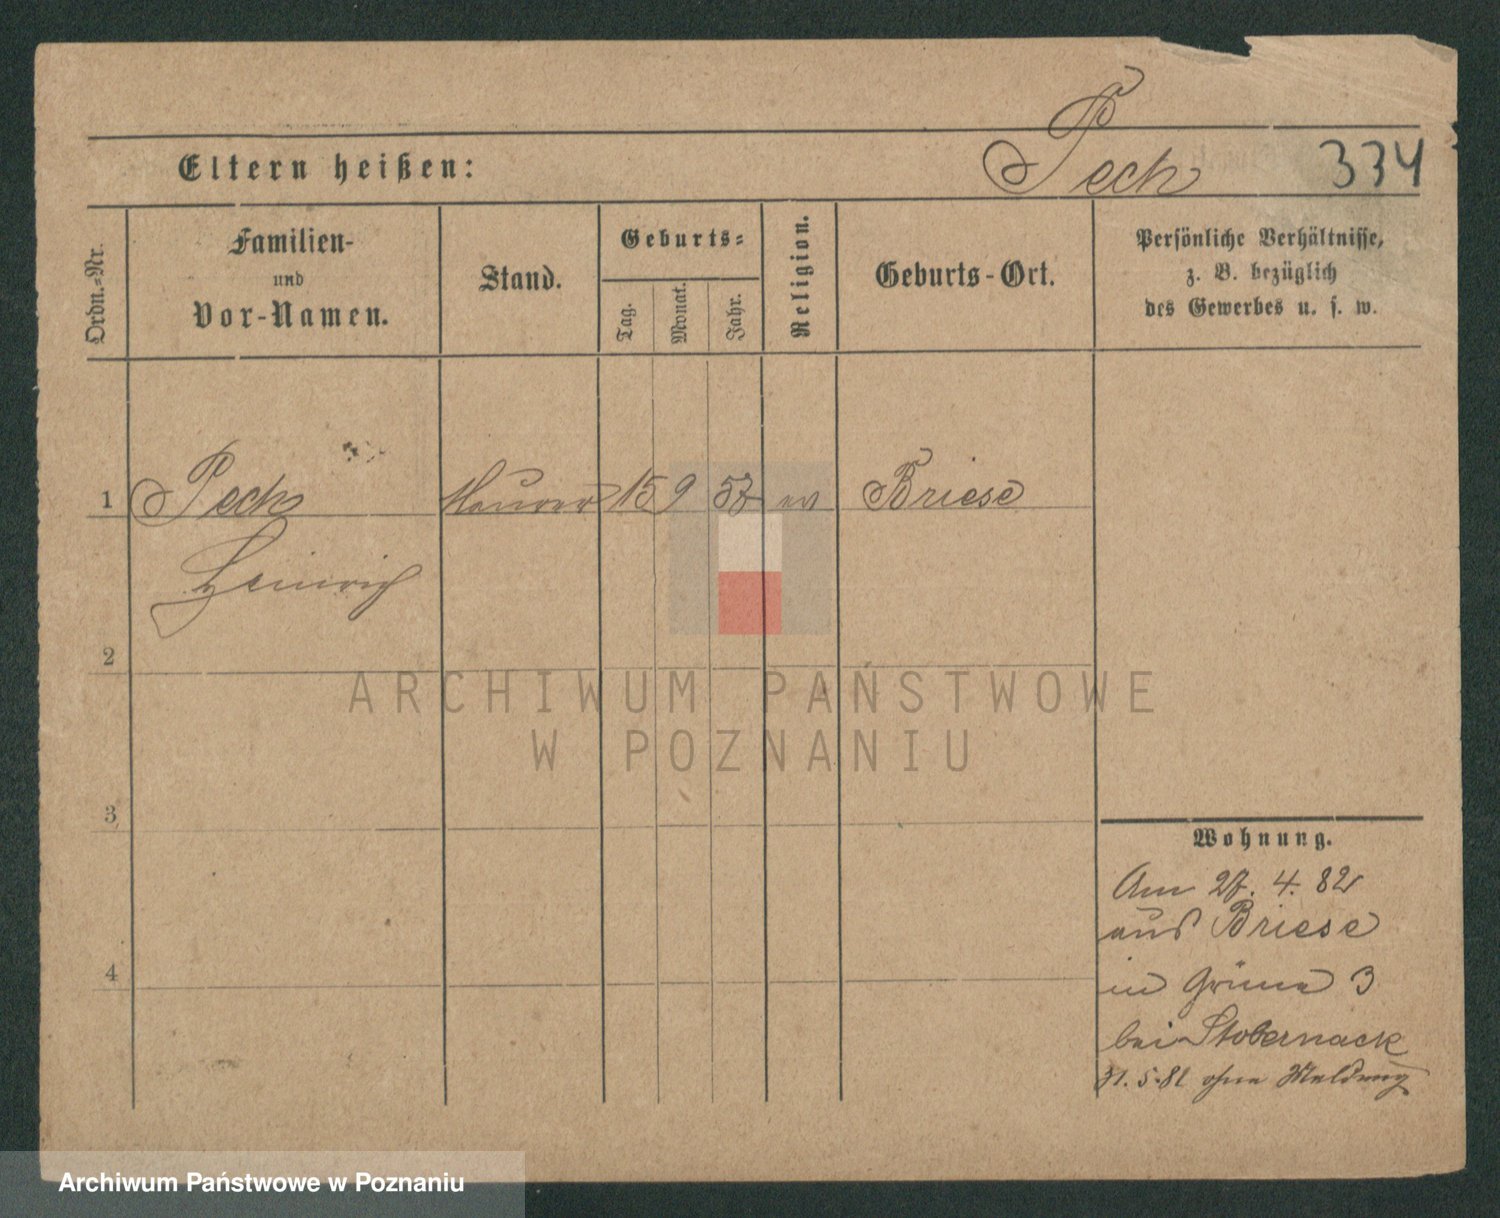 Eltern heißen:
Pech
334
Ordn.-Nr.
Familien-
und
Vor-Namen.
Stand.
Geburts-
Tag.
Monat.
Jahr.
Religion.
Geburts-Ort.
Persönliche Verhältnisse,
z. B. bezüglich
des Gewerbes u. s. w.
1 Pech Maurer 15 9 57 ev Briese
Heinrich
2
3
4
Wohnung.
Am 27. 4. 82
aus Briese
in Grüne 3
bei Stobernack
31. 5. 82 ohne Meldung
ARCHIWUM PAŃSTWOWE
W POZNANIU
Archiwum Państwowe w Poznaniu